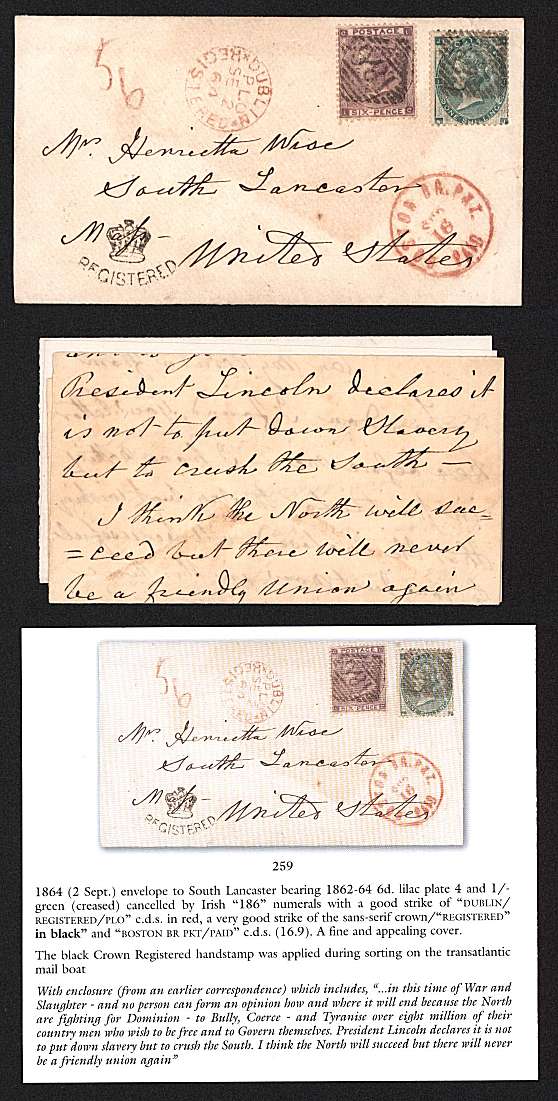 56
DUBLIN
REGISTERED
PLO
SE 2
64
POSTAGE
SIX-PENCE
Mrs Henrietta Wise
South Lancaster
Mass-
United States
REGISTERED
BOSTON BR. PKT. PAID
SEP
16
President Lincoln declares it
is not to put down Slavery
but to crush the South —
I think the North will suc=
=ceed but there will never
be a friendly Union again
56
DUBLIN
REGISTERED
PLO
SE 2
64
POSTAGE
SIX-PENCE
Mrs Henrietta Wise
South Lancaster
Mass-
United States
REGISTERED
BOSTON BR. PKT. PAID
SEP
16
259
1864 (2 Sept.) envelope to South Lancaster bearing 1862-64 6d. lilac plate 4 and 1/-
green (creased) cancelled by Irish “186” numerals with a good strike of “DUBLIN/
REGISTERED/PLO” c.d.s. in red, a very good strike of the sans-serif crown/“REGISTERED”
in black” and “BOSTON BR PKT/PAID” c.d.s. (16.9). A fine and appealing cover.
The black Crown Registered handstamp was applied during sorting on the transatlantic
mail boat
With enclosure (from an earlier correspondence) which includes, “...in this time of War and
Slaughter - and no person can form an opinion how and where it will end because the North
are fighting for Dominion - to Bully, Coerce - and Tyranise over eight million of their
country men who wish to be free and to Govern themselves. President Lincoln declares it is not
to put down slavery but to crush the South. I think the North will succeed but there will never
be a friendly union again”